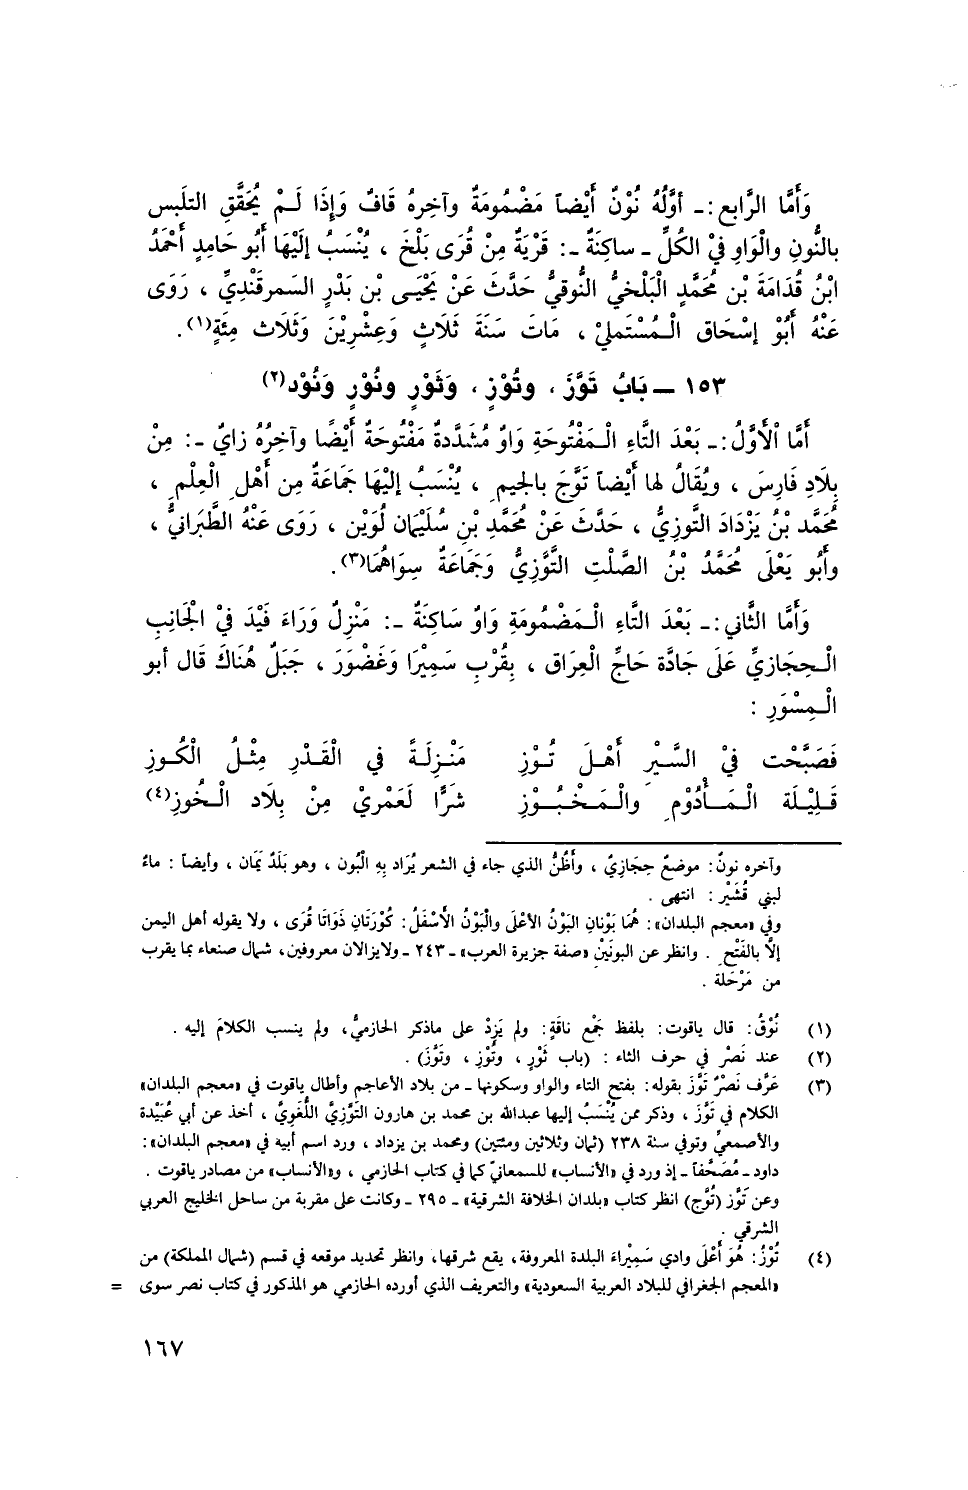 وَأَمَّا الرَّابع :ـ أوَّلُهُ نُوْنٌ أَيْضاً مَضْمُومَةٌ وآخِرهُ قَافٌ وَإِذَا لَـمْ يُحَقَّقِ التلَبس
بالنُّونِ والْوَاوِ فيْ الكُلِّ ـ ساكِنَةٌ ـ: قَرْيَةٌ مِنْ قُرَى بَلْخَ ، يُنْسَبُ إلَيْهَا أَبُو حَامِدٍ أَحْمَدُ
ابْنُ قُدَامَةَ بْن مُحَمَّدٍ الْبَلْخيُّ النُّوقيُّ حَدَّثَ عَنْ يَحْيَـى بْن بَدْرٍ السَمرقَنْديِّ ، رَوَى
عَنْهُ أَبُوْ إسْحَاق الْـمُسْتَمليْ ، مَاتَ سَنَةَ ثَلاَثٍ وَعِشْرِيْنَ وَثَلَاث مِئَةٍ(١).
١٥٣ ــ بَابُ تَوَّزَ ، وتُوْزٍ ، وَثَوْرٍ ونُوْرٍ وَنُوْد(٢)
أَمَّا الْأَوَّلُ :ـ بَعْدَ التَّاءِ الْـمَفْتُوحَةِ وَاوٌ مُشَدَّدةٌ مَفْتُوحَةٌ أَيْضًا وآخِرُهُ زايٌ ـ: مِنْ
بِلَادِ فَارِسَ ، ويُقَالُ لها أَيْضاً تَوَّجَ بالجيم ِ ، يُنْسَبُ إليْهَا جَمَاعَةٌ مِن أَهْل ِ الْعِلْم ِ ،
مُحَمَّد بْنُ يَزْدَادَ التَّوزِيُّ ، حَدَّثَ عَنْ مُحَمَّدِ بْنِ سُلَيْمَان لُوَيْن ، رَوَى عَنْهُ الطَّبَرانيُّ ،
وأَبُو يَعْلَى مُحَمَّدُ بْنُ الصَّلْتِ التَّوَّزِيُّ وَجَمَاعَةٌ سِوَاهُمَا(٣).
وَأَمَّا الثَّاني :ـ بَعْدَ التَّاءِ الْـمَضْمُومَةِ وَاوٌ سَاكِنَةٌ ـ: مَنْزِلٌ وَرَاءَ فَيْدَ فيْ الْجَانِبِ
الْـحِجَازيِّ عَلَى جَادَّة حَاجِّ الْعِرَاق ، بِقُرْبِ سَمِيْرَا وَغَضْوَرَ ، جَبَلٌ هُنَاكَ قَال أبو
الْـمِسْوَرِ :
فَصَبَّحْت فيْ السَّيْر أَهْـلَ تُـوْزِ مَنْـزِلَـةً في الْقَـدْرِ مِثْـلُ الْكُـوزِ
قَلِيْلَة الْـمَـأْدُوْم ِ والْـمَـخْبُـوْزِ شَرًّا لَعَمْريْ مِنْ بِلَاد الْـخُوزِ(٤)
وآخره نونٌ : موضعٌ حِجَازيٌ ، وأَظُنُّ الذي جاء في الشعر يُرَاد بِهِ الْبُون ، وهو بَلَدٌ يَمَان ، وأيضاً : ماءٌ
لبني قُشَيْر : انتهى .
وفي «معجم البلدان» : هُمَا بَوْنانِ البَوْنُ الأعْلَى والْبَوْنُ الأَسْفَلُ : كُوْرَتَانِ ذَوَاتَا قُرَى ، ولا يقوله أهل اليمن
إلاَّ بالفَتْح ِ . وانظر عن البونَيْنِ «صفة جزيرة العرب» ـ ٢٤٣ ـ ولايزالان معروفين ، شمال صنعاء بما يقرب
من مَرْحَلة .
(١) نُوْقُ : قال ياقوت : بلفظ جَمْع ناقَةٍ : ولم يَزِدْ على ماذكر الحازميُّ ، ولم ينسب الكلامَ إليه .
(٢) عند نَصْر في حرف الثاء : (باب ثَوْر ، وتُوْزٍ ، وتَوَّزَ) .
(٣) عَرَّف نَصْرٌ تَوَّزَ بقوله : بفتح التاء والواو وسكونها ـ من بلاد الأعاجم وأطال ياقوت في «معجم البلدان»
الكلام في تَوَّزَ ، وذكر ممن يُنْسَبُ إليها عبدالله بن محمد بن هارون التَّوَّزِيَّ اللُّغَوِيَّ ، أخذ عن أبي عُبَيْدة
والأصمعيِّ وتوفي سنة ٢٣٨ (ثمان وثلاثين ومئتين) ومحمد بن يزداد ، ورد اسم أبيه في «معجم البلدان» :
داود ـ مُصَحَّفاً ـ إذ ورد في «الأنساب» للسمعانيِّ كما في كتاب الحازمي ، و«الأنساب» من مصادر ياقوت .
وعن تَوَّز (تُوَّج) انظر كتاب «بلدان الخلافة الشرقية» ـ ٢٩٥ ـ وكانت على مقربة من ساحل الخليج العربي
الشرقي .
(٤) تُوْزُ : هُوَ أَعْلَى وادي سَمِيْرَاءَ البلدة المعروفة ، يقع شرقها ، وانظر تحديد موقعه في قسم (شمال المملكة) من
«المعجم الجغرافي للبلاد العربية السعودية» والتعريف الذي أورده الحازمي هو المذكور في كتاب نصر سوى =
١٦٧